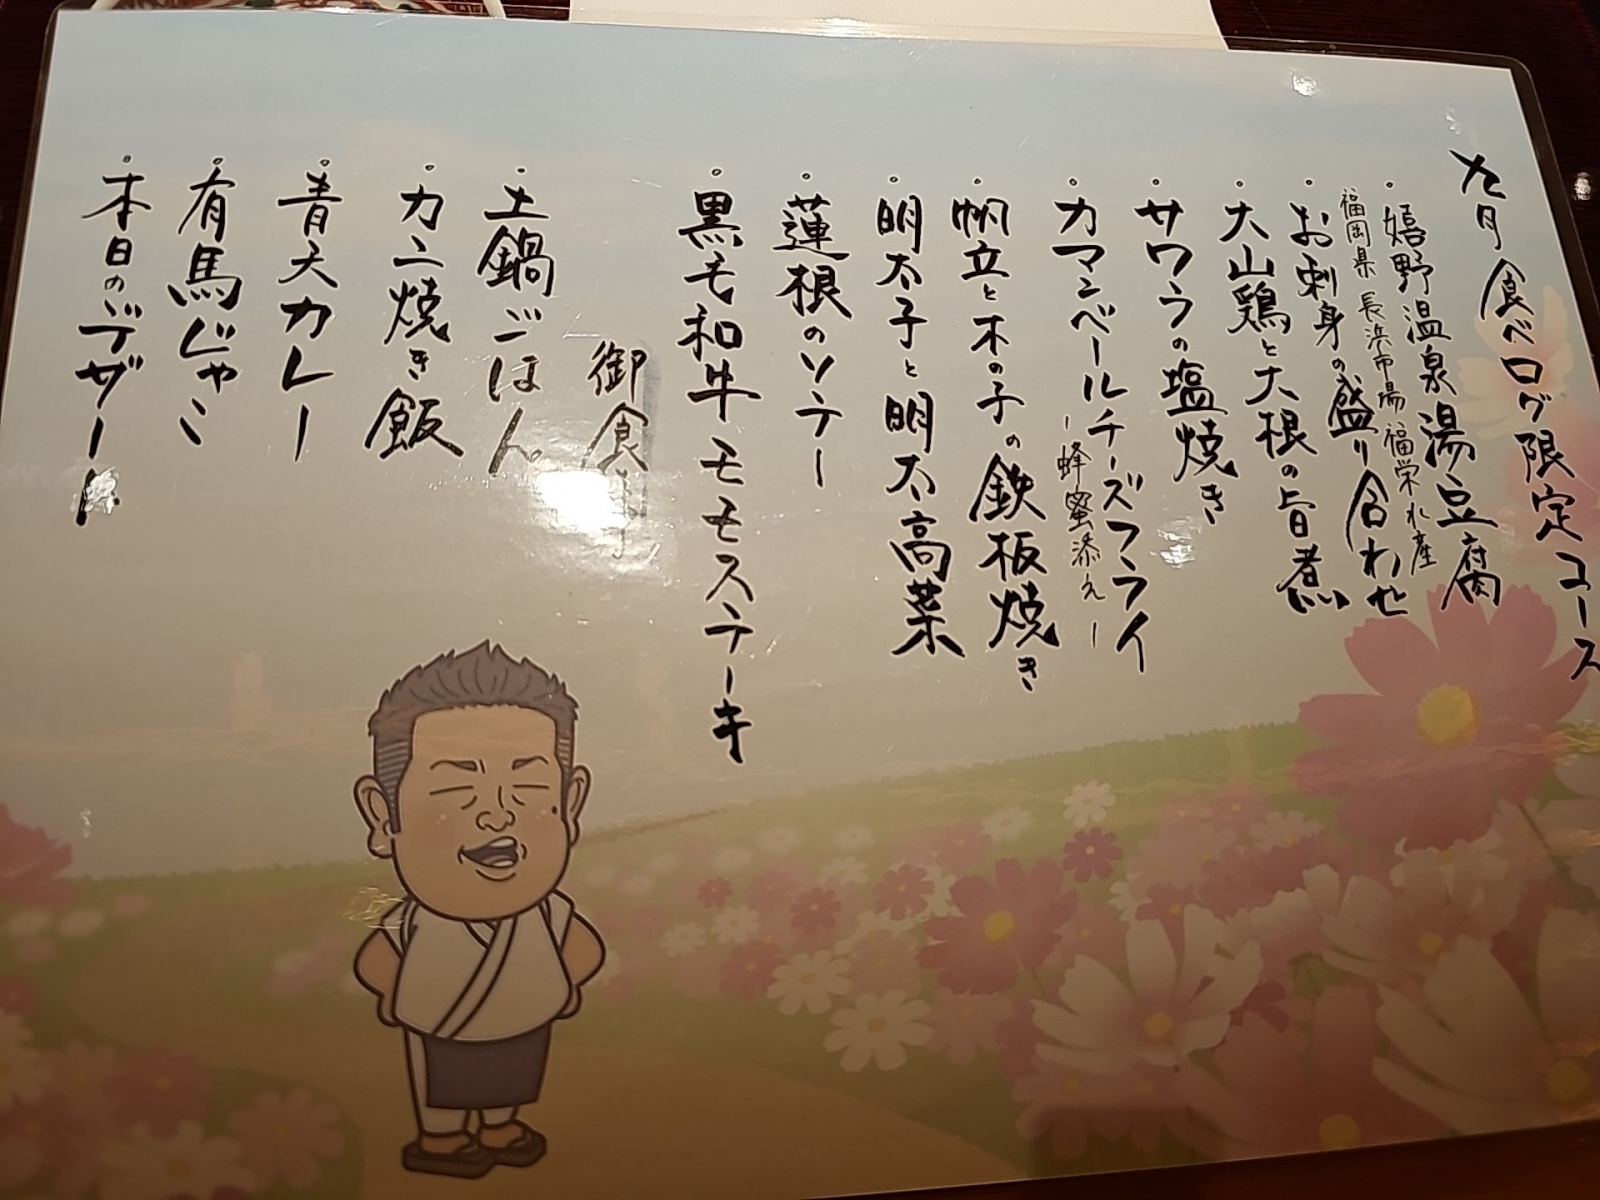 九月 食べログ限定コース
・嬉野温泉湯豆腐
福岡県 長浜市場 福栄水産
・お刺身の盛り合わせ
・大山鶏と大根の旨煮
・サワラの塩焼き
・カマンベールチーズフライ
-蜂蜜添え-
・帆立と木の子の鉄板焼き
・明太子と明太高菜
・蓮根のソテー
・黒毛和牛モモステーキ
御食事
・土鍋ごはん
・カニ焼き飯
・青天カレー
・有馬じゃこ
・本日のデザート